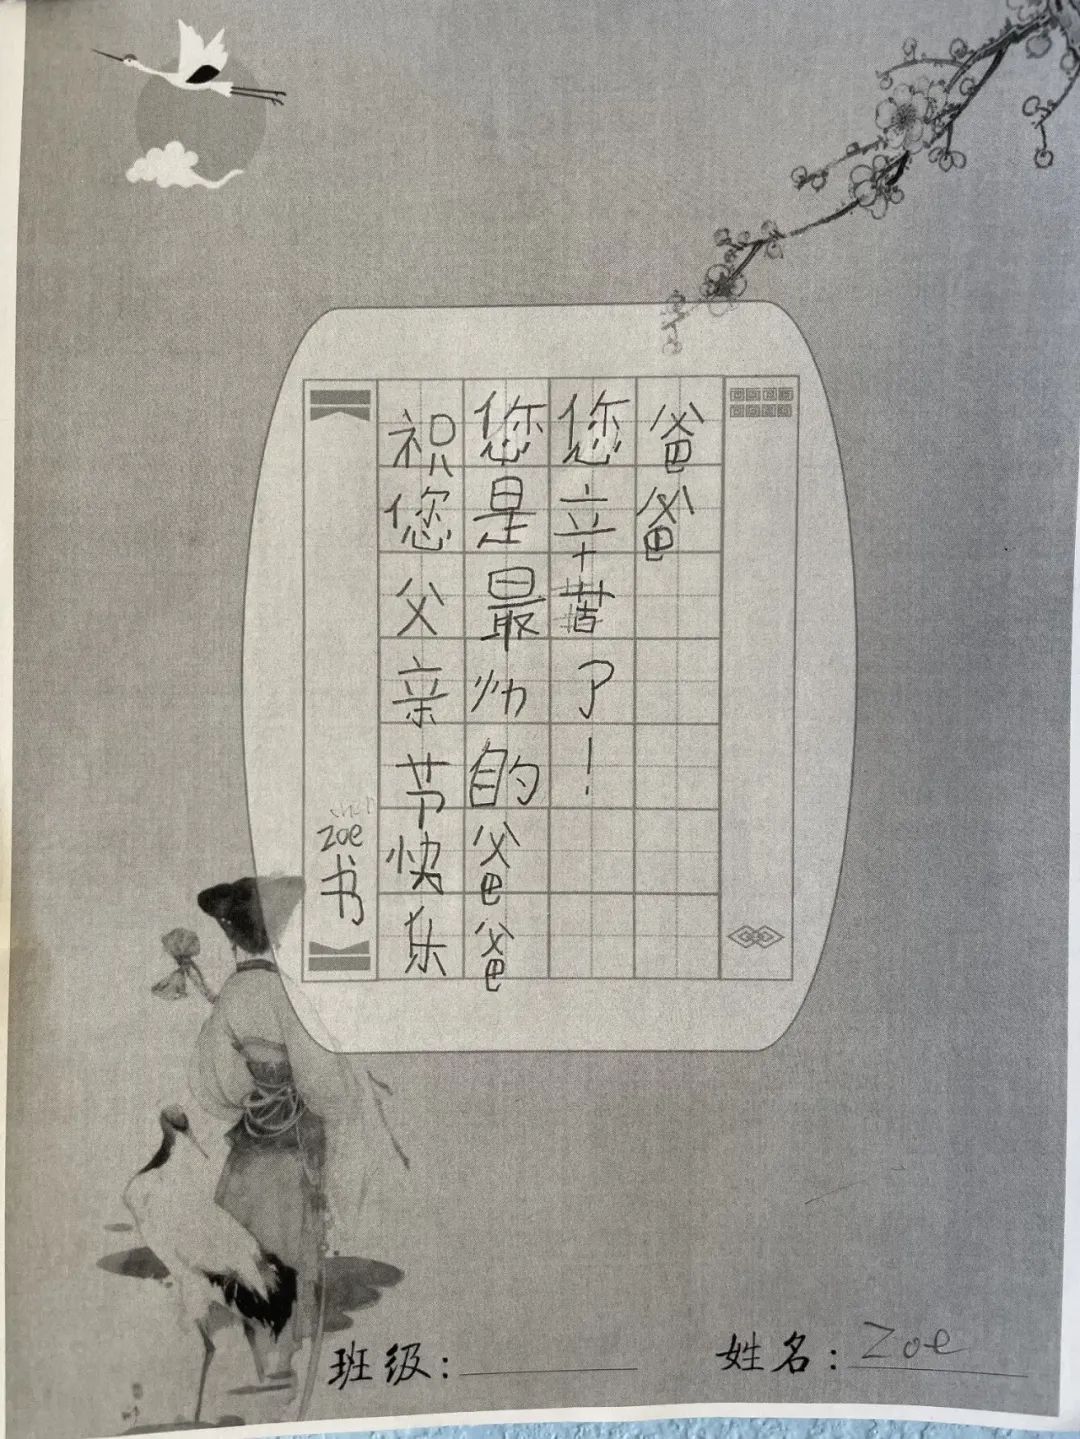 爸爸
您辛苦了！
您是最帅的爸爸
祝您父亲节快乐
zoe书
班级：
姓名：Zoe